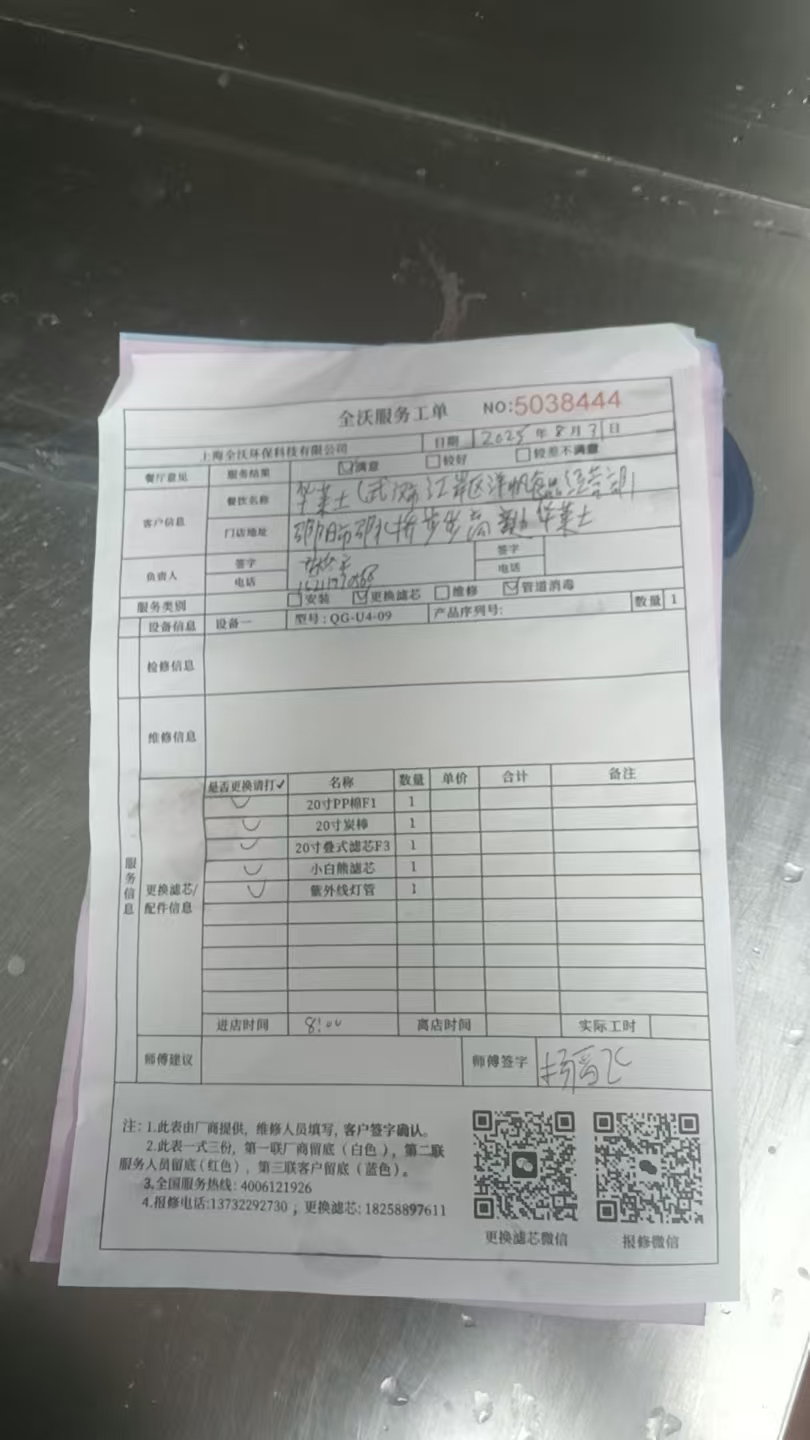 全沃服务工单 NO:5038444
上海全沃环保科技有限公司 日期 2025 年 8 月 31 日
餐厅意见 服务结果 ☑满意 □较好 □较差不满意
客户信息 餐饮名称 华莱士(武汉市江夏区洋帆食品经营部)
门店地址 步步高 华莱士
负责人 签字 签字
电话 电话
服务类别 □安装 ☑更换滤芯 □维修 ☑管道消毒
设备信息 设备一 型号:QG-U4-09 产品序列号: 数量 1
检修信息
维修信息
服务信息
更换滤芯/配件信息
是否更换请打✓ 名称 数量 单价 合计 备注
✓ 20寸PP棉F1 1
✓ 20寸炭棒 1
✓ 20寸叠式滤芯F3 1
✓ 小白熊滤芯 1
✓ 紫外线灯管 1
进店时间 8:00 离店时间 实际工时
师傅建议 师傅签字
注: 1.此表由厂商提供, 维修人员填写, 客户签字确认。
2.此表一式三份, 第一联厂商留底(白色), 第二联
服务人员留底(红色), 第三联客户留底(蓝色)。
3.全国服务热线: 4006121926
4.报修电话:13732292730 ; 更换滤芯: 18258897611
更换滤芯微信 报修微信